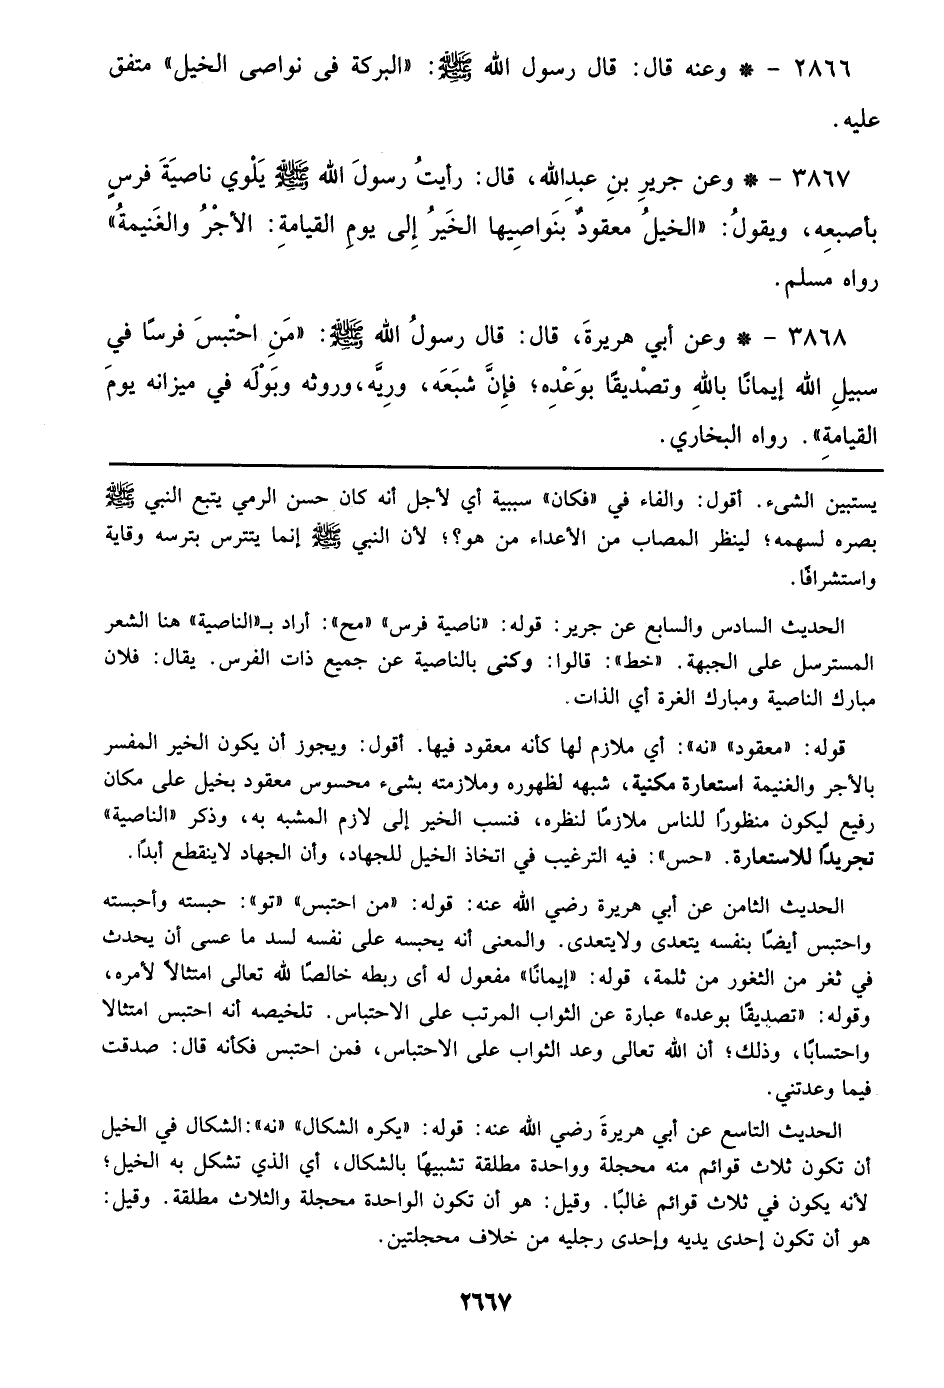 ٢٨٦٦ - * وعنه قال: قال رسول الله ﷺ: «البركة فى نواصى الخيل» متفق
عليه.
٣٨٦٧ - * وعن جريرِ بنِ عبدِالله، قال: رأيتُ رسولَ الله ﷺ يَلْوي ناصيَةَ فرسٍ
بأصبعِه، ويقولُ: «الخيلُ معقودٌ بنَواصِيها الخَيرُ إلى يومِ القيامةِ: الأجْرُ والغَنيمةُ»
رواه مسلم.
٣٨٦٨ - * وعن أبي هريرةَ، قال: قال رسولُ الله ﷺ: «مَنِ احْتبسَ فرسًا في
سبيلِ الله إيمانًا باللهِ وتصْديقًا بوَعْدِه؛ فإِنَّ شبَعَه، ورِيَّه،وروثه وبَوْلَه في ميزانه يومَ
القيامةِ». رواه البخاري.
يستبين الشىء. أقول: والفاء في «فكان» سببية أي لأجل أنه كان حسن الرمي يتبع النبي ﷺ
بصره لسهمه؛ لينظر المصاب من الأعداء من هو؟؛ لأن النبي ﷺ إنما يتترس بترسه وقاية
واستشرافًا.
الحديث السادس والسابع عن جرير: قوله: «ناصية فرس» «مح»: أراد بـ«الناصية» هنا الشعر
المسترسل على الجبهة. «خط»: قالوا: وكنى بالناصية عن جميع ذات الفرس. يقال: فلان
مبارك الناصية ومبارك الغرة أي الذات.
قوله: «معقود» «نه»: أي ملازم لها كأنه معقود فيها. أقول: ويجوز أن يكون الخير المفسر
بالأجر والغنيمة استعارة مكنية، شبهه لظهوره وملازمته بشىء محسوس معقود بخيل على مكان
رفيع ليكون منظورًا للناس ملازمًا لنظره، فنسب الخير إلى لازم المشبه به، وذكر «الناصية»
تجريدًا للاستعارة. «حس»: فيه الترغيب في اتخاذ الخيل للجهاد، وأن الجهاد لاينقطع أبدًا.
الحديث الثامن عن أبي هريرة رضي الله عنه: قوله: «من احتبس» «تو»: حبسته وأحبسته
واحتبس أيضًا بنفسه يتعدى ولايتعدى. والمعنى أنه يحبسه على نفسه لسد ما عسى أن يحدث
في ثغر من الثغور من ثلمة، قوله: «إيمانًا» مفعول له أى ربطه خالصًا لله تعالى امتثالاً لأمره،
وقوله: «تصديقًا بوعده» عبارة عن الثواب المرتب على الاحتباس. تلخيصه أنه احتبس امتثالا
واحتسابًا، وذلك؛ أن الله تعالى وعد الثواب على الاحتباس، فمن احتبس فكأنه قال: صدقت
فيما وعدتني.
الحديث التاسع عن أبي هريرةَ رضي الله عنه: قوله: «يكره الشكال» «نه»:الشكال في الخيل
أن تكون ثلاث قوائم منه محجلة وواحدة مطلقة تشبيهًا بالشكال، أي الذي تشكل به الخيل؛
لأنه يكون في ثلاث قوائم غالبًا. وقيل: هو أن تكون الواحدة محجلة والثلاث مطلقة. وقيل:
هو أن تكون إحدى يديه وإحدى رجليه من خلاف محجلتين.
٢٦٦٧